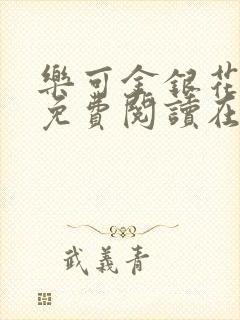 樂可金銀花
免費閱讀在
武義青